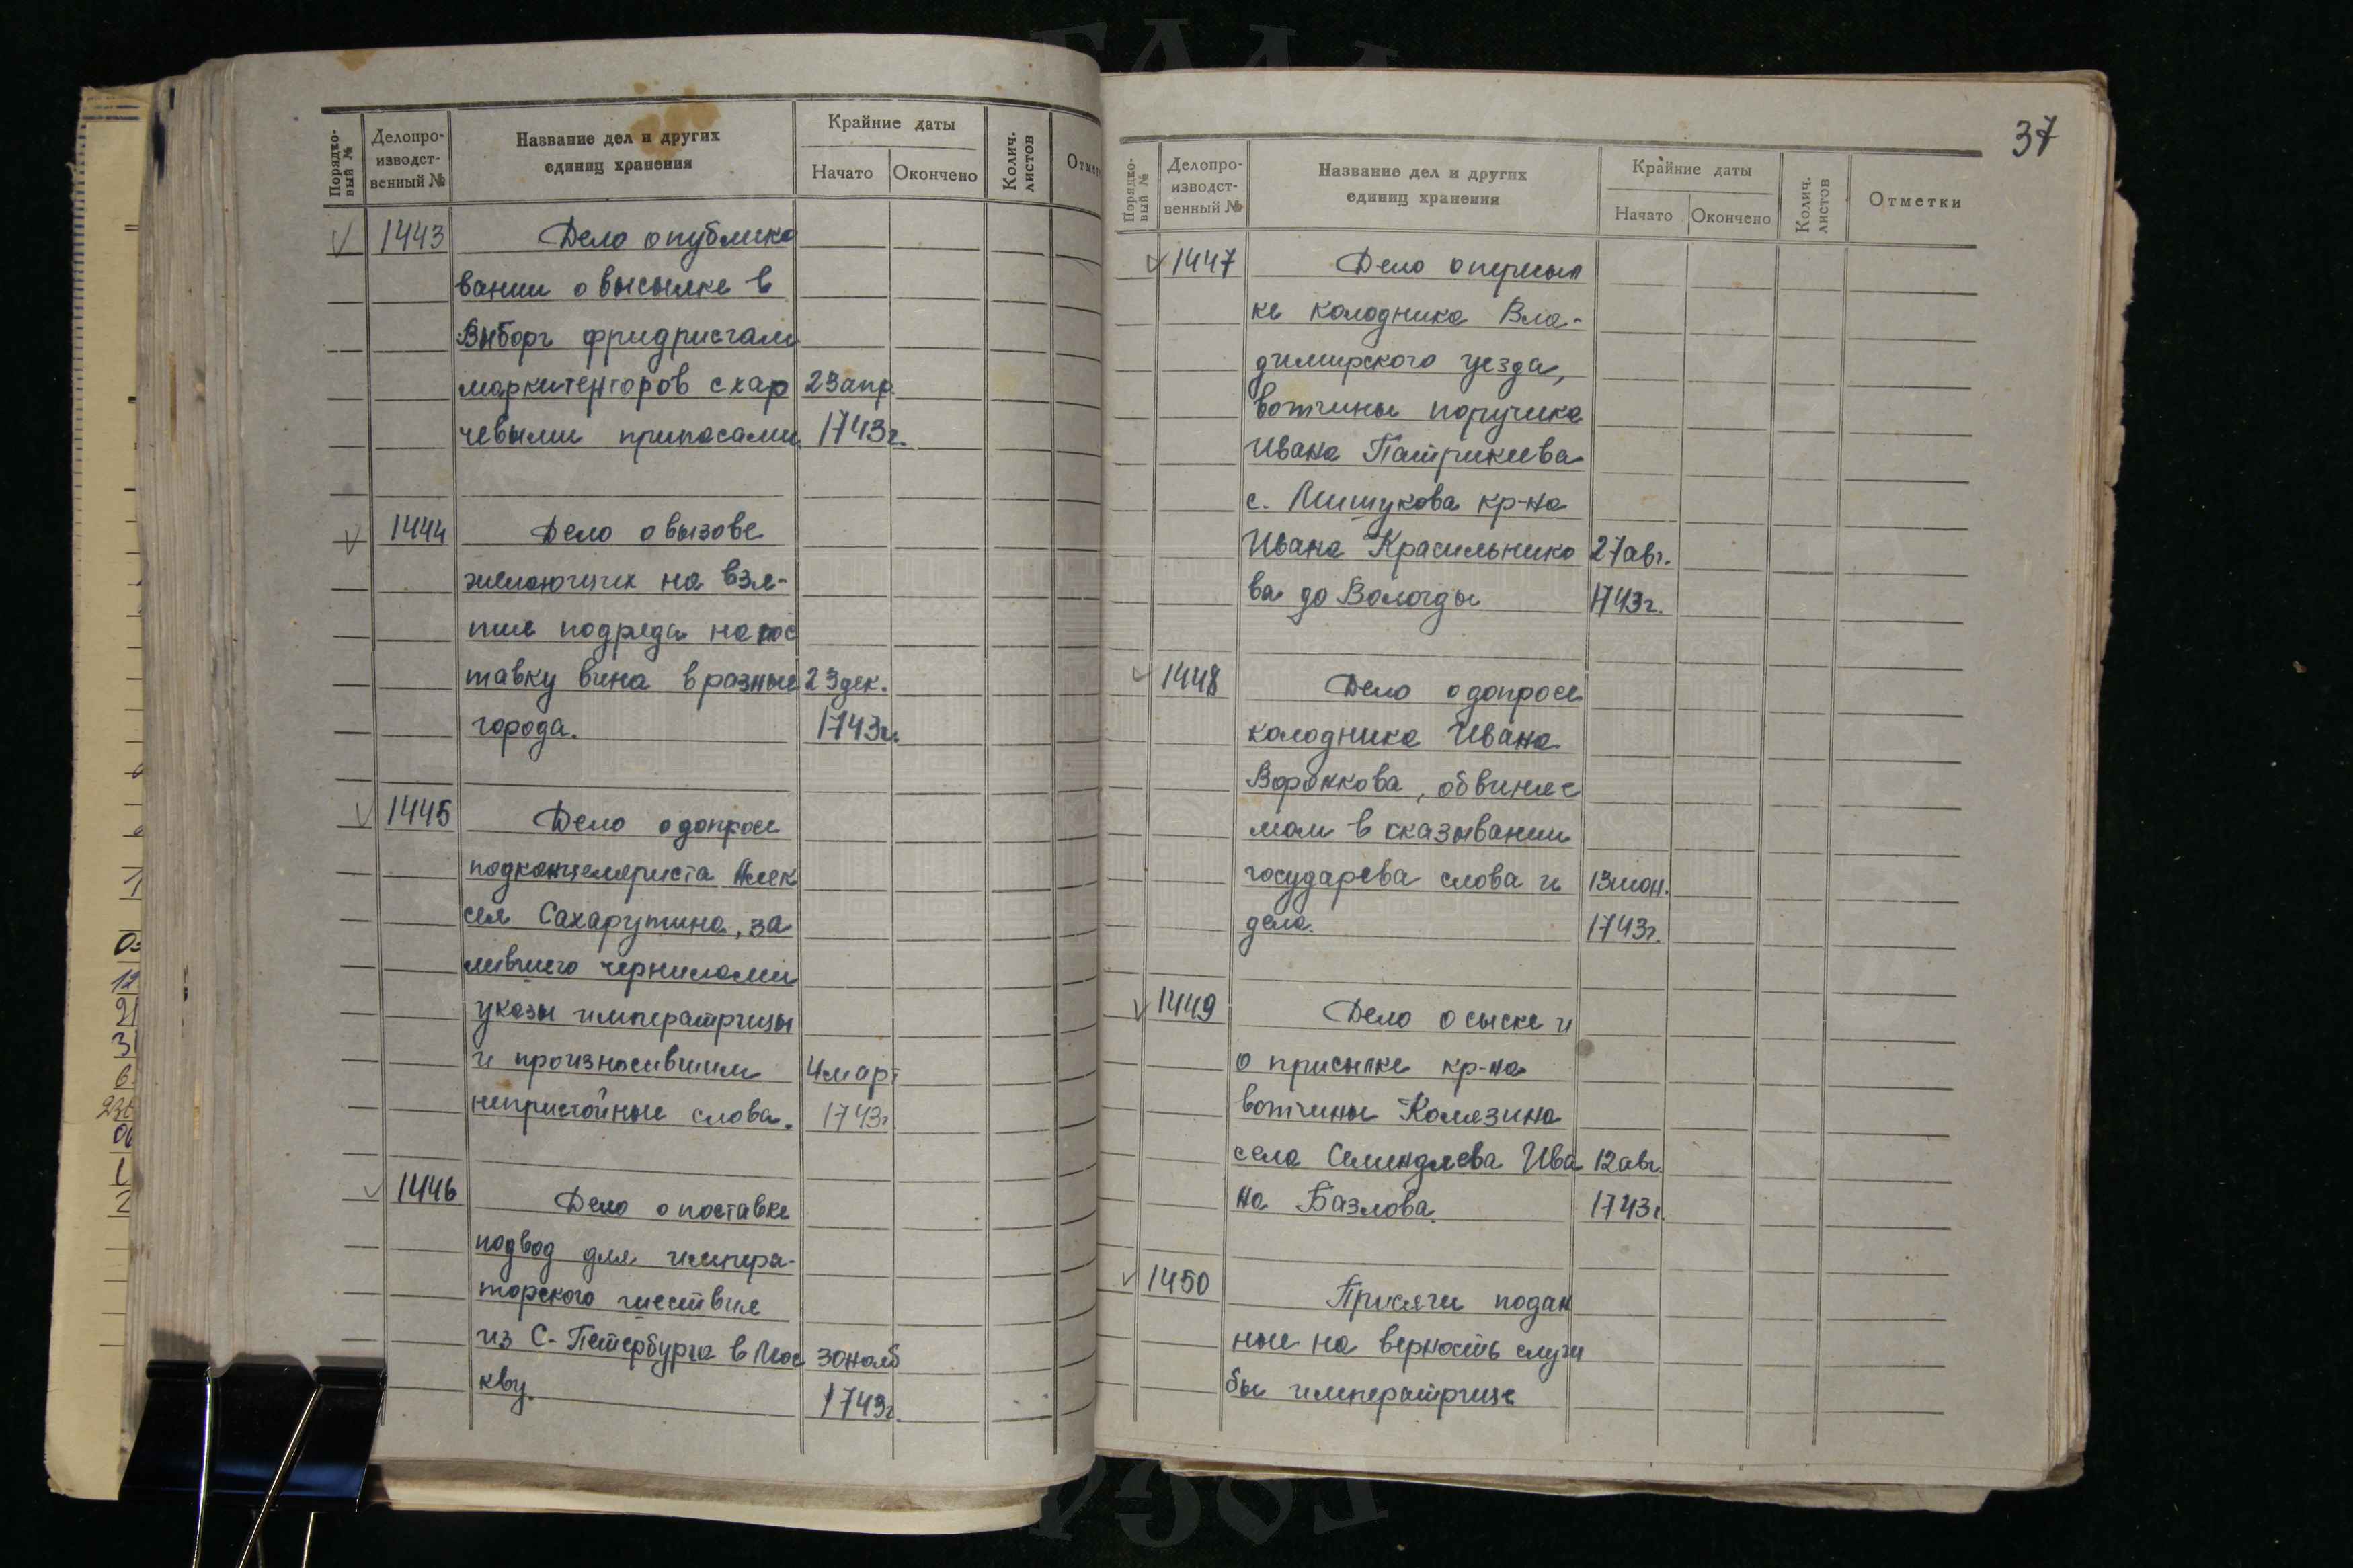 Порядко-
вый №
Делопро-
изводст-
венный №
Название дел и других
единиц хранения
Крайние даты
Начато
Окончено
Колич.
листов
1443 Дело о публико
вании о высылке в
Выборг фридрисгам
маркитенторов с хар 23 апр.
чевыми припасами. 1743 г.
1444 Дело о вызове
желающих на взя-
тие подряда на пос
тавку вина в разные 23 дек.
города. 1743 г.
1445 Дело о допросе
подканцеляриста Алек
сея Сахарутина, за
лившего чернилами
указы императрицы
и произносившим 4 март
непристойные слова. 1743 г.
1446 Дело о поставке
подвод для импера-
торского шествия
из С-Петербурга в Мос 30 нояб
кву. 1743 г.
37
Порядко-
вый №
Делопро-
изводст-
венный №
Название дел и других
единиц хранения
Крайние даты
Начато
Окончено
Колич.
листов
Отметки
1447 Дело о пересыл
ке колодника Вла-
димирского уезда,
вотчины поручика
Ивана Патрикеева
с. Мишукова кр-на
Ивана Красильнико 27 авг.
ва до Вологды 1743 г.
1448 Дело о допросе
колодника Ивана
Воронкова, обвиняе
мом в сказывании
государева слова и 13 июн.
дела. 1743 г.
1449 Дело о сыске и
о присылке кр-на
вотчины Колязина
села Семендяева Ива 12 авг.
на Базлова. 1743 г.
1450 Присяги подан
ные на верность служ
бы императрице